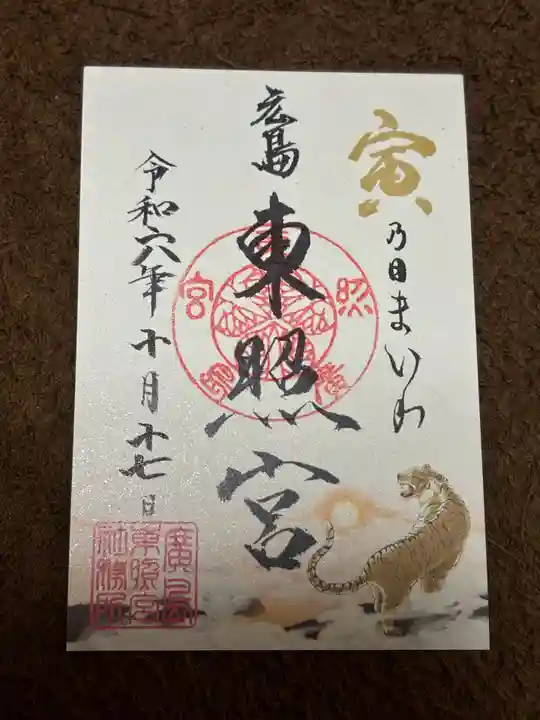 寅
乃日まいり
広島
東照宮
令和六年十月十七日
廣島
東照宮
社務所